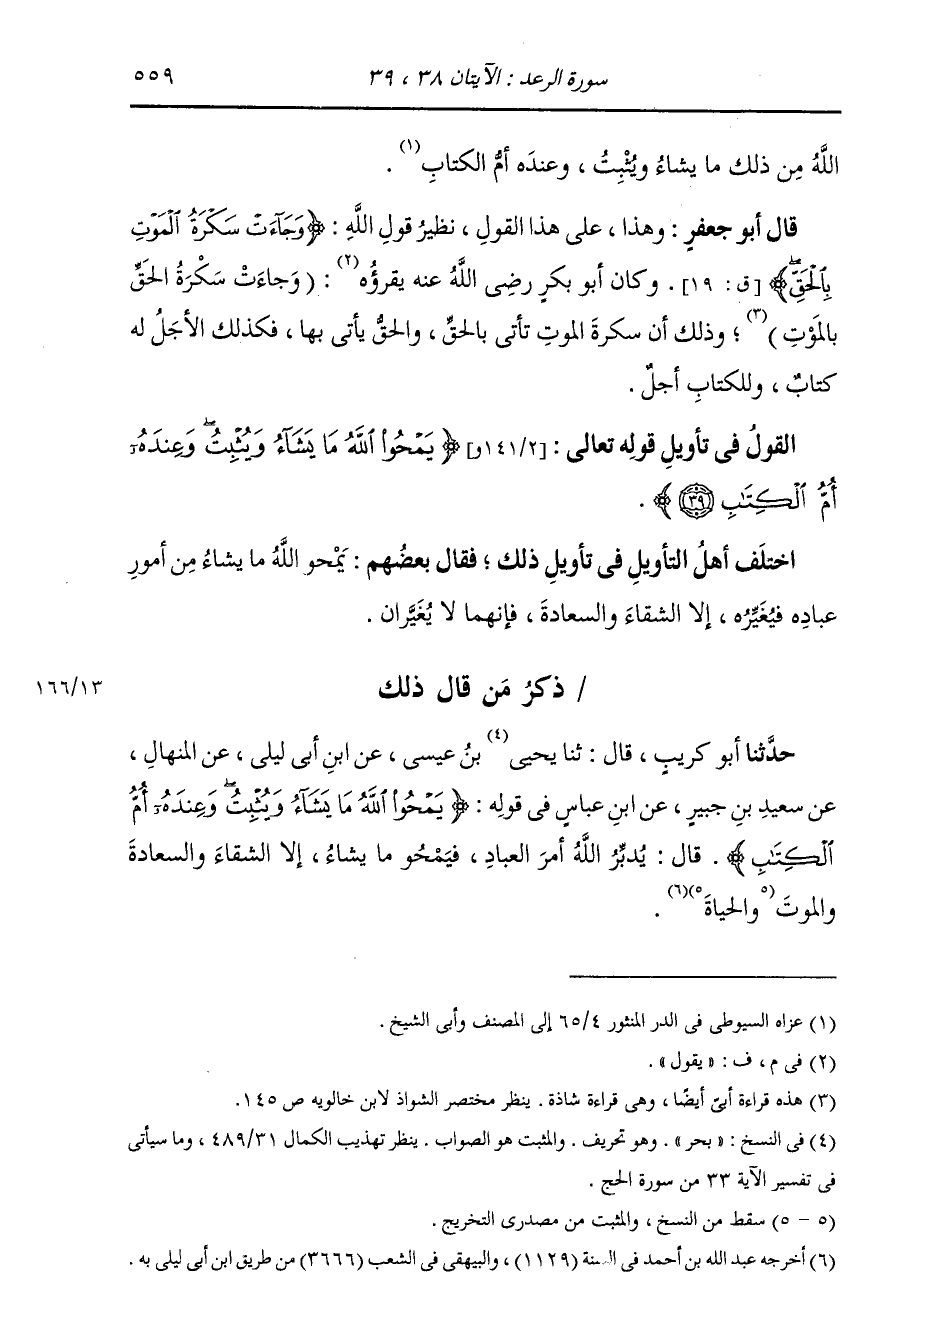 سورة الرعد : الآيتان ٣٨ ، ٣٩ ٥٥٩
اللَّهُ مِن ذلك ما يشاءُ ويُثْبِتُ ، وعندَه أمُّ الكتابِ(١) .
قال أبو جعفرٍ : وهذا ، على هذا القولِ ، نظيرُ قولِ اللَّهِ : ﴿ وَجَآءَتْ سَكْرَةُ ٱلْمَوْتِ
بِٱلْحَقِّۖ ﴾ [ق : ١٩] . وكان أبو بكرٍ رضِى اللَّهُ عنه يقرؤُه(٢) : ( وَجاءَتْ سَكْرَةُ الحَقِّ
بالمَوْتِ )(٣) ؛ وذلك أن سكرةَ الموتِ تأتى بالحقِّ ، والحقُّ يأتى بها ، فكذلك الأجَلُ له
كتابٌ ، وللكتابِ أجلٌ .
القولُ فى تأويلِ قولِه تعالى : [١٤١/٢و] ﴿ يَمْحُوا۟ ٱللَّهُ مَا يَشَآءُ وَيُثْبِتُۖ وَعِندَهُۥٓ
أُمُّ ٱلْكِتَٰبِ ٣٩ ﴾ .
اختلَف أهلُ التأويلِ فى تأويلِ ذلك ؛ فقال بعضُهم : يَمْحو اللَّهُ ما يشاءُ مِن أمورِ
عبادِه فيُغَيِّرُه ، إلا الشقاءَ والسعادةَ ، فإنهما لا يُغَيَّران .
/ ذكرُ مَن قال ذلك ١٦٦/١٣
حدَّثنا أبو كريبٍ ، قال : ثنا يحيى(٤) بنُ عيسى ، عن ابنِ أبى ليلى ، عن المنهالِ ،
عن سعيدِ بنِ جبيرٍ ، عن ابنِ عباسٍ فى قولِه : ﴿ يَمْحُوا۟ ٱللَّهُ مَا يَشَآءُ وَيُثْبِتُۖ وَعِندَهُۥٓ أُمُّ
ٱلْكِتَٰبِ ﴾ . قال : يُدبِّرُ اللَّهُ أمرَ العبادِ ، فيَمْحُو ما يشاءُ ، إلا الشقاءَ والسعادةَ
والموتَ (٥والحياةَ٥)(٦) .
(١) عزاه السيوطى فى الدر المنثور ٦٥/٤ إلى المصنف وأبى الشيخ .
(٢) فى م ، ف : « يقول » .
(٣) هذه قراءة أبىّ أيضًا ، وهى قراءة شاذة . ينظر مختصر الشواذ لابن خالويه ص ١٤٥.
(٤) فى النسخ : « بحر » . وهو تحريف . والمثبت هو الصواب . ينظر تهذيب الكمال ٤٨٩/٣١ ، وما سيأتى
فى تفسير الآية ٣٣ من سورة الحج .
(٥ - ٥) سقط من النسخ ، والمثبت من مصدرى التخريج .
(٦) أخرجه عبد الله بن أحمد فى السنة (١١٢٩) ، والبيهقى فى الشعب (٣٦٦٦) من طريق ابن أبى ليلى به .